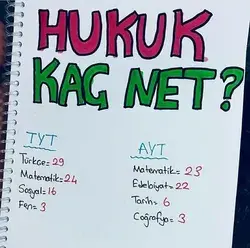 HUKUK
KAÇ NET?
TYT
Türkçe= 29
Matematik= 24
Sosyal= 16
Fen= 3
AYT
Matematik= 23
Edebiyat= 22
Tarih= 6
Coğrafya= 3